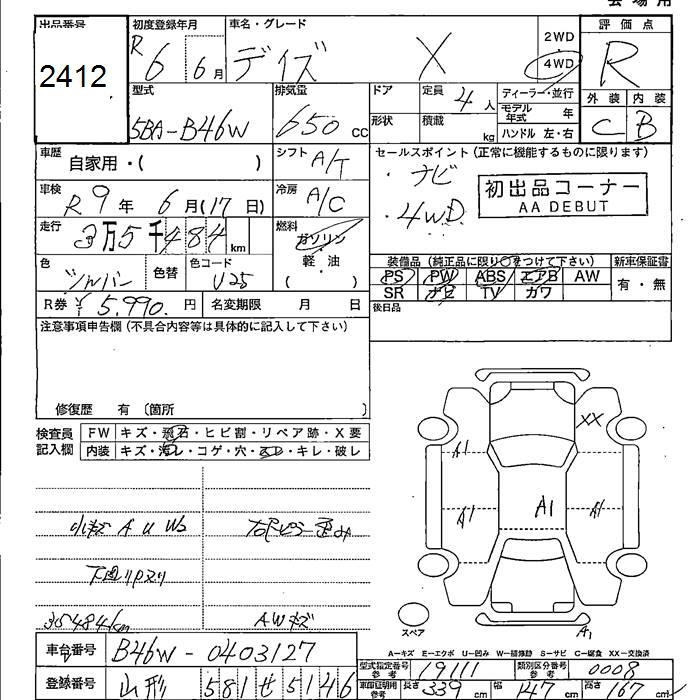 会場用
出品番号
2412
初度登録年月
R6 6月
車名・グレード
デイズ X
2WD
4WD
評価点
R
型式
5BA-B46W
排気量
650 cc
ドア
形状
定員 4人
積載 kg
ディーラー・並行
モデル年式 年
ハンドル 左・右
外装 内装
C B
車歴 自家用・( )
シフト A/T
セールスポイント(正常に機能するものに限ります)
・ナビ
・4WD
初出品コーナー
AA DEBUT
車検 R9年 6月(17日)
冷房 A/C
走行 3万5千484km
燃料 ガソリン
軽・油
( )
色 シルバー
色替
色コード U25
装備品(純正品に限り○をつけて下さい)
新車保証書
PS PW ABS エアB AW
SR ナビ TV カワ
有・無
R券 ¥5,990.円
名変期限 月 日
後日品
注意事項申告欄(不具合内容等は具体的に記入して下さい)
修復歴 有 〔箇所 〕
検査員記入欄
FW キズ・飛石・ヒビ割・リペア跡・X要
内装 キズ・汚レ・コゲ・穴・スレ・キレ・破レ
小キズ A U W2
下回りPスリ
35484km
AWキズ
XX
A1
A1
A1
A1
A1
スペア
A-キズ E-エクボ U-凹み W-補修跡 S-サビ C-腐食 XX-交換済
車台番号 B46W-0403127
登録番号 山形 581 せ 5146
型式指定番号 参考 19111
類別区分番号 参考 0008
車印証明用 参考 長さ 339cm 幅 147cm 高さ 167cm